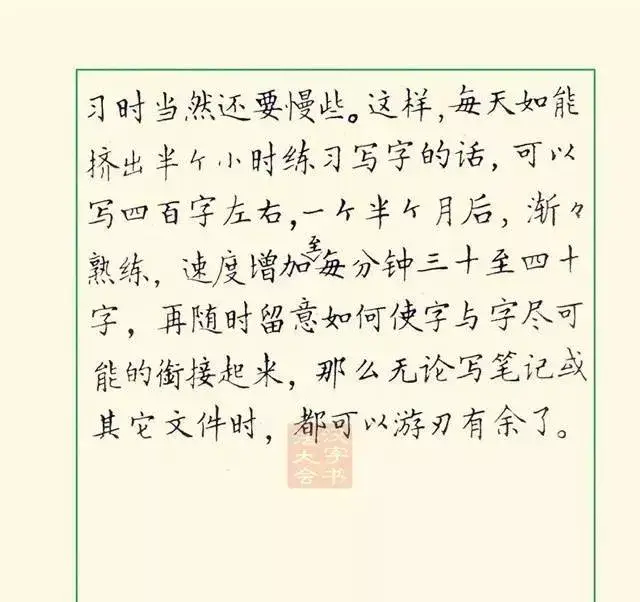 习时当然还要慢些。这样,每天如能
挤出半个小时练习写字的话,可以
写四百字左右,一个半个月后,渐々
熟练,速度增加至每分钟三十至四十
字,再随时留意如何使字与字尽可
能的衔接起来,那么无论写笔记或
其它文件时,都可以游刃有余了。
汉字书
法大会